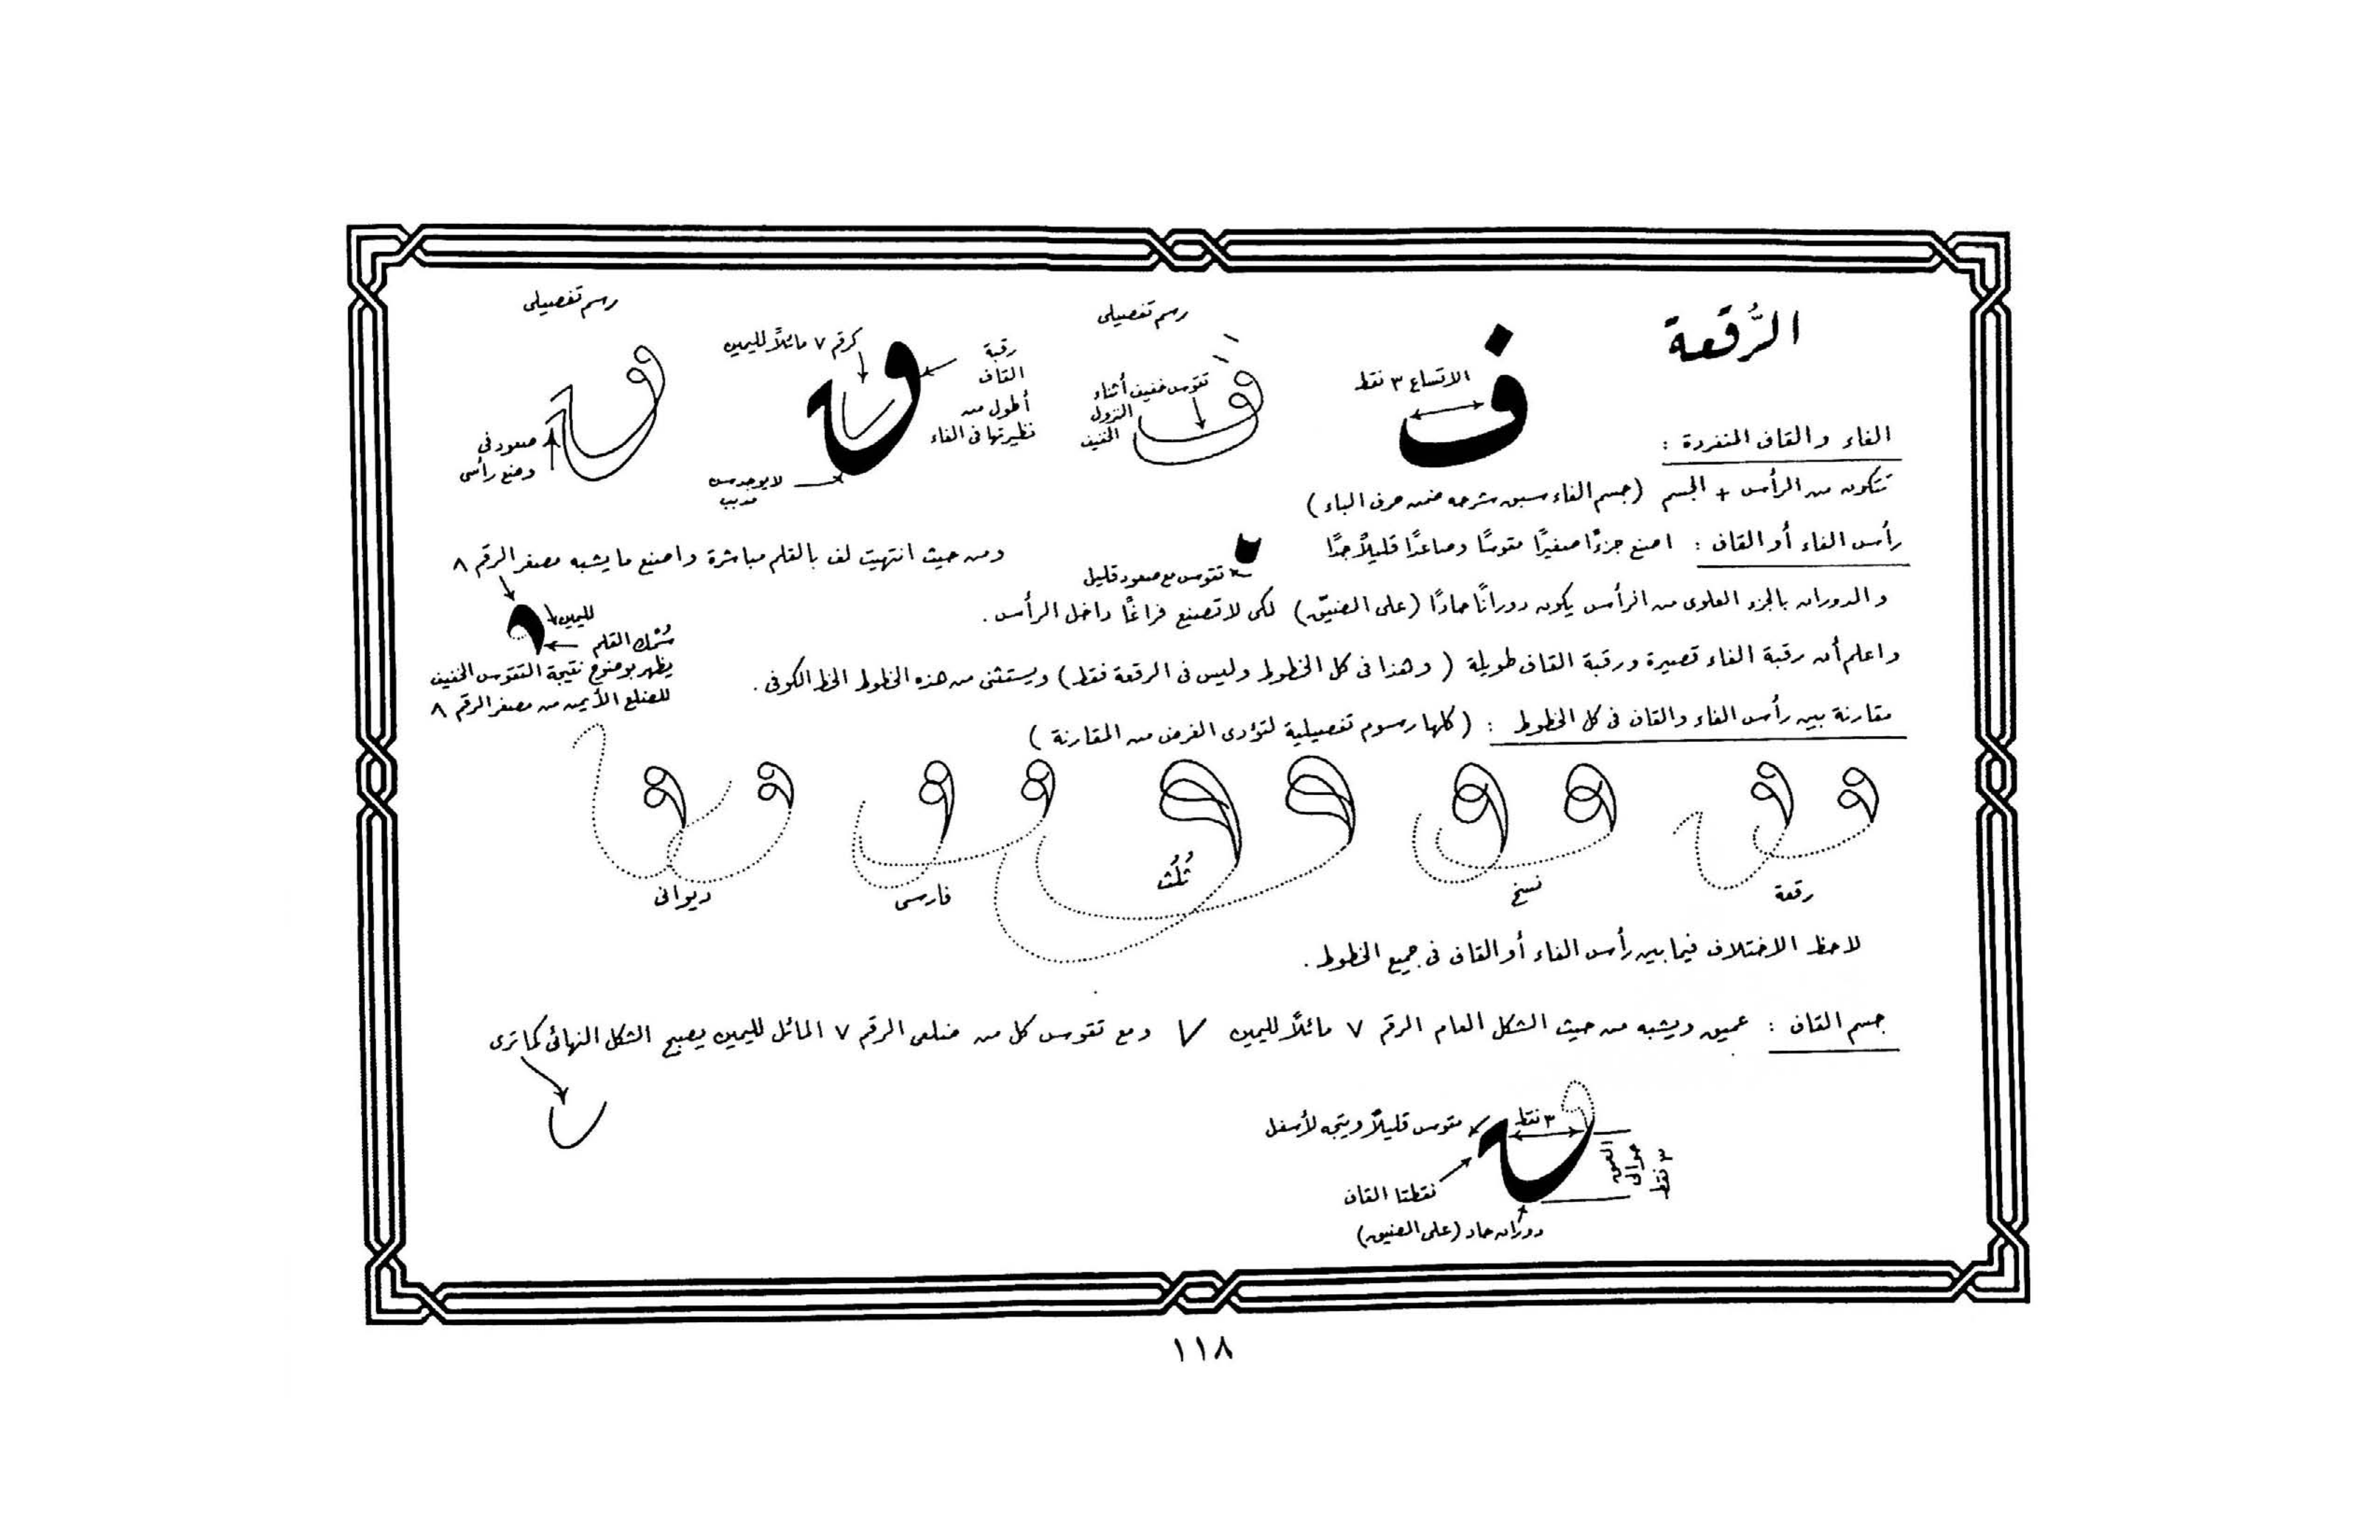 الرُّقعة
رسم تفصيلى
رسم تفصيلى
الاتساع ٣ نقط
تقوس خفيف أثناء
النزول
الخفيف
رقبة
القاف
أطول من
نظيرتها فى الفاء
كرقم ٧ مائلاً لليمين
لا يوجد سن
مدبب
صعود فى
وضع رأسى
الفاء والقاف المنفردة :
تتكون من الرأس + الجسم (جسم الفاء سبق شرحه ضمن حرف الباء)
رأس الفاء أو القاف : اصنع جزءًا صغيرًا مقوسًا وصاعدًا قليلاً جدًا
تقوس مع صعود قليل
ومن حيث انتهيت لف بالقلم مباشرة واصنع ما يشبه مصغر الرقم ٨
والدوران بالجزء العلوى من الرأس يكون دورانًا حادًا (على الضيّق) لكى لا تصنع فراغًا داخل الرأس .
لليمين
سُمْك القلم
يظهر بوضوح نتيجة التقوس الخفيف
للضلع الأيمن من مصغر الرقم ٨
واعلم أن رقبة الفاء قصيرة ورقبة القاف طويلة (وهذا فى كل الخطوط وليس فى الرقعة فقط) ويستثنى من هذه الخطوط الخط الكوفى .
مقارنة بين رأس الفاء والقاف فى كل الخطوط : (كلها رسوم تفصيلية لتؤدى الغرض من المقارنة)
رقعة
نسخ
ثُلُث
فارسى
ديوانى
لاحظ الاختلاف فيما بين رأس الفاء أو القاف فى جميع الخطوط .
جسم القاف : عميق ويشبه من حيث الشكل العام الرقم ٧ مائلاً لليمين ومع تقوس كل من ضلعى الرقم ٧ المائل لليمين يصبح الشكل النهائى كما ترى
٣ نقط
مقوس قليلاً ويتجه لأسفل
العمق
حوالى
٣ نقط
نقطتا القاف
دوران حاد (على الضيق)
١١٨